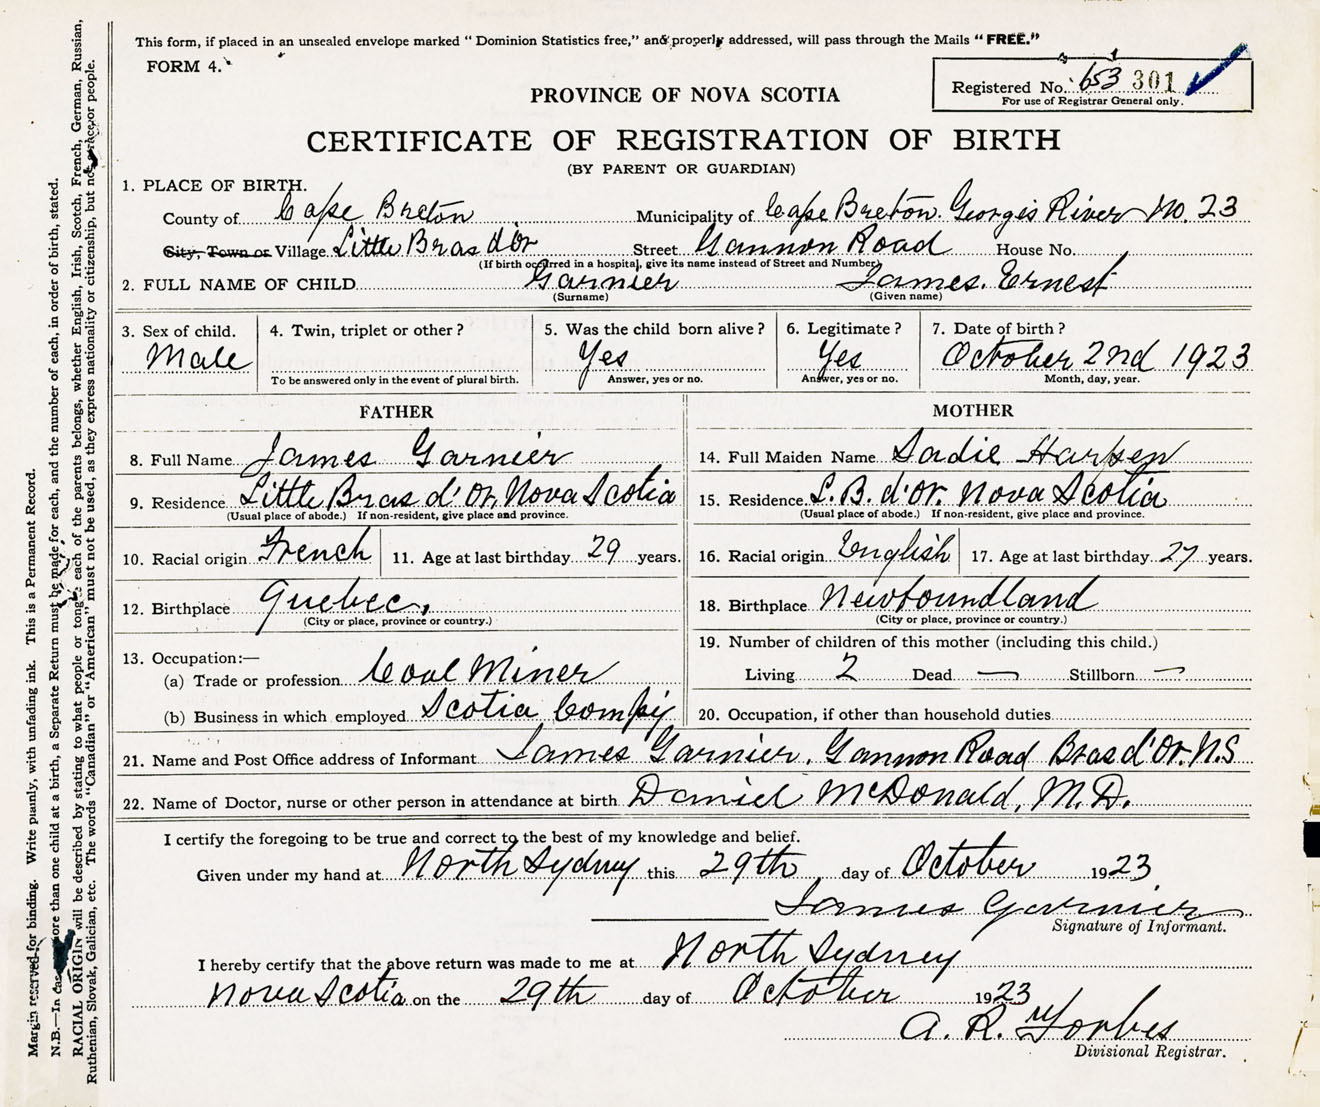 This form, if placed in an unsealed envelope marked "Dominion Statistics free," and properly addressed, will pass through the Mails "FREE."
FORM 4.
Registered No. 653 301
For use of Registrar General only.
PROVINCE OF NOVA SCOTIA
CERTIFICATE OF REGISTRATION OF BIRTH
(BY PARENT OR GUARDIAN)
1. PLACE OF BIRTH.
County of Cape Breton Municipality of Cape Breton. Georges River No. 23
City, Town or Village Little Bras d'Or Street Gannon Road House No.
(If birth occurred in a hospital, give its name instead of Street and Number)
2. FULL NAME OF CHILD Garnier James. Ernest
(Surname) (Given name)
3. Sex of child. 4. Twin, triplet or other? 5. Was the child born alive? 6. Legitimate? 7. Date of birth?
Male Yes Yes October 2nd 1923
To be answered only in the event of plural birth. Answer, yes or no. Answer, yes or no. Month, day, year.
FATHER
8. Full Name James Garnier
9. Residence Little Bras d'Or, Nova Scotia
(Usual place of abode.) If non-resident, give place and province.
10. Racial origin French 11. Age at last birthday 29 years.
12. Birthplace Quebec,
(City or place, province or country.)
13. Occupation:—
(a) Trade or profession Coal Miner
(b) Business in which employed Scotia Comp'y
MOTHER
14. Full Maiden Name Sadie Harpen
15. Residence L. B. d'or. Nova Scotia
(Usual place of abode.) If non-resident, give place and province.
16. Racial origin English 17. Age at last birthday 27 years.
18. Birthplace Newfoundland
(City or place, province or country.)
19. Number of children of this mother (including this child.)
Living 2 Dead — Stillborn —
20. Occupation, if other than household duties
21. Name and Post Office address of Informant James Garnier, Gannon Road Bras d'Or. N.S
22. Name of Doctor, nurse or other person in attendance at birth Daniel McDonald, M.D.
I certify the foregoing to be true and correct to the best of my knowledge and belief.
Given under my hand at North Sydney this 29th day of October 1923
James Garnier
Signature of Informant.
I hereby certify that the above return was made to me at North Sydney
Nova Scotia on the 29th day of October 1923
A. R. Forbes
Divisional Registrar.
Margin reserved for binding. Write plainly, with unfading ink. This is a Permanent Record.
N.B.—In case more than one child at a birth, a Separate Return must be made for each, and the number of each, in order of birth, stated.
RACIAL ORIGIN will be described by stating to what people or tongue each of the parents belongs, whether English, Irish, Scotch, French, German, Russian,
Ruthenian, Slovak, Galician, etc. The words "Canadian" or "American" must not be used, as they express nationality or citizenship, but not race or people.